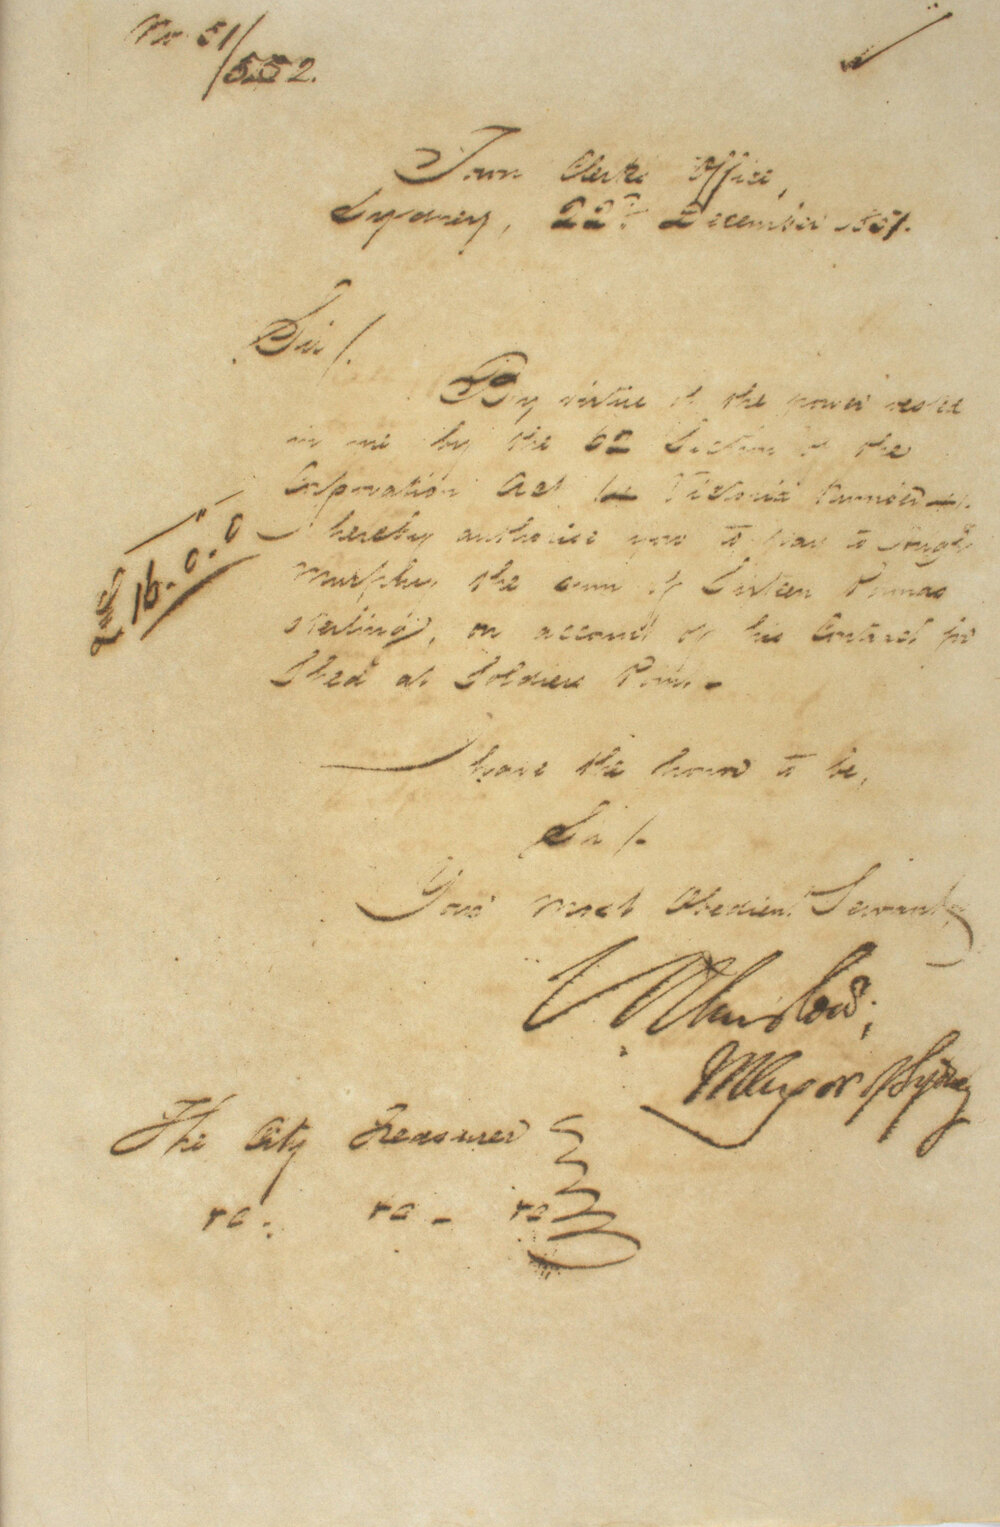 No 51/552.
Town Clerks Office,
Sydney, 22nd December 1851.
Sir/.
By virtue of the power vested
in me by the 62 Section of the
Corporation Act 14 Victoria Number 41.
I hereby authorise you to pay to Hugh
Murphy the sum of Sixteen Pounds
sterling, on account of his Contract for
Shed at Soldiers Point -
£ 16.0.0
I have the honor to be,
Sir/.
Your Most Obedient Servant
Mayor of Sydney
The City Treasurer
&c. &c - &c